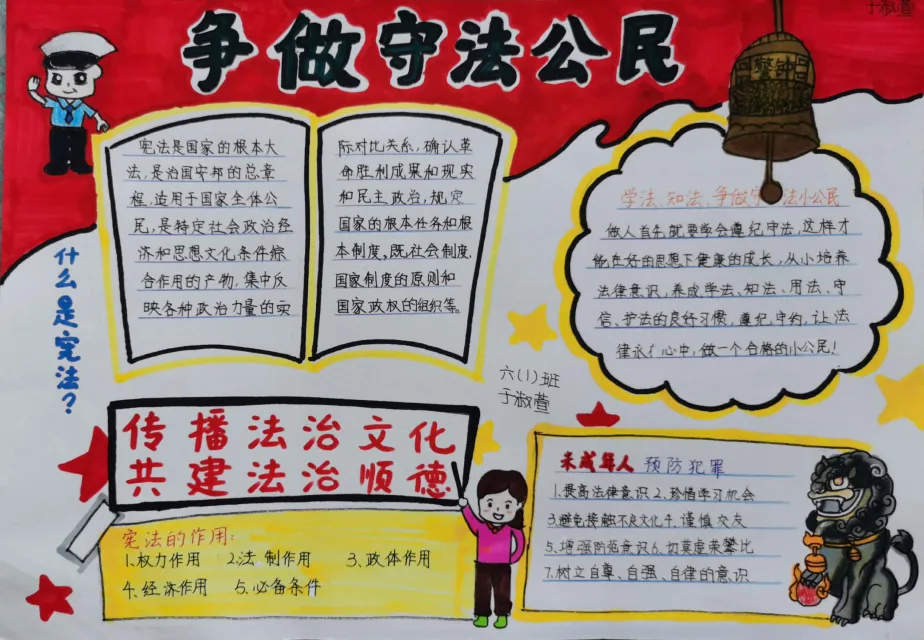 争做守法公民
于淑萱
警钟
什么是宪法？
宪法是国家的根本大
法，是治国安邦的总章
程，适用于国家全体公
民，是特定社会政治经
济和思想文化条件综
合作用的产物，集中反
映各种政治力量的实
际对比关系，确认革
命胜利成果和现实
和民主政治，规定
国家的根本任务和根
本制度，既社会制度，
国家制度的原则和
国家政权的组织等。
学法、知法、争做守法小公民
做人首先就要学会遵纪守法，这样才
能在好的思想下健康的成长，从小培养
法律意识，养成学法、知法、用法、守
信、护法的良好习惯，遵纪，守约，让法
律永行心中，做一个合格的小公民！
六(1)班
于淑萱
传播法治文化
共建法治顺德
宪法的作用：
1、权力作用 2、法制作用 3、政体作用
4、经济作用 5、必备条件
未成年人 预防犯罪
1、提高法律意识 2、珍惜学习机会
3、避免接触不良文化 4、谨慎交友
5、增强防范意识 6、切莫虚荣攀比
7、树立自尊、自强、自律的意识